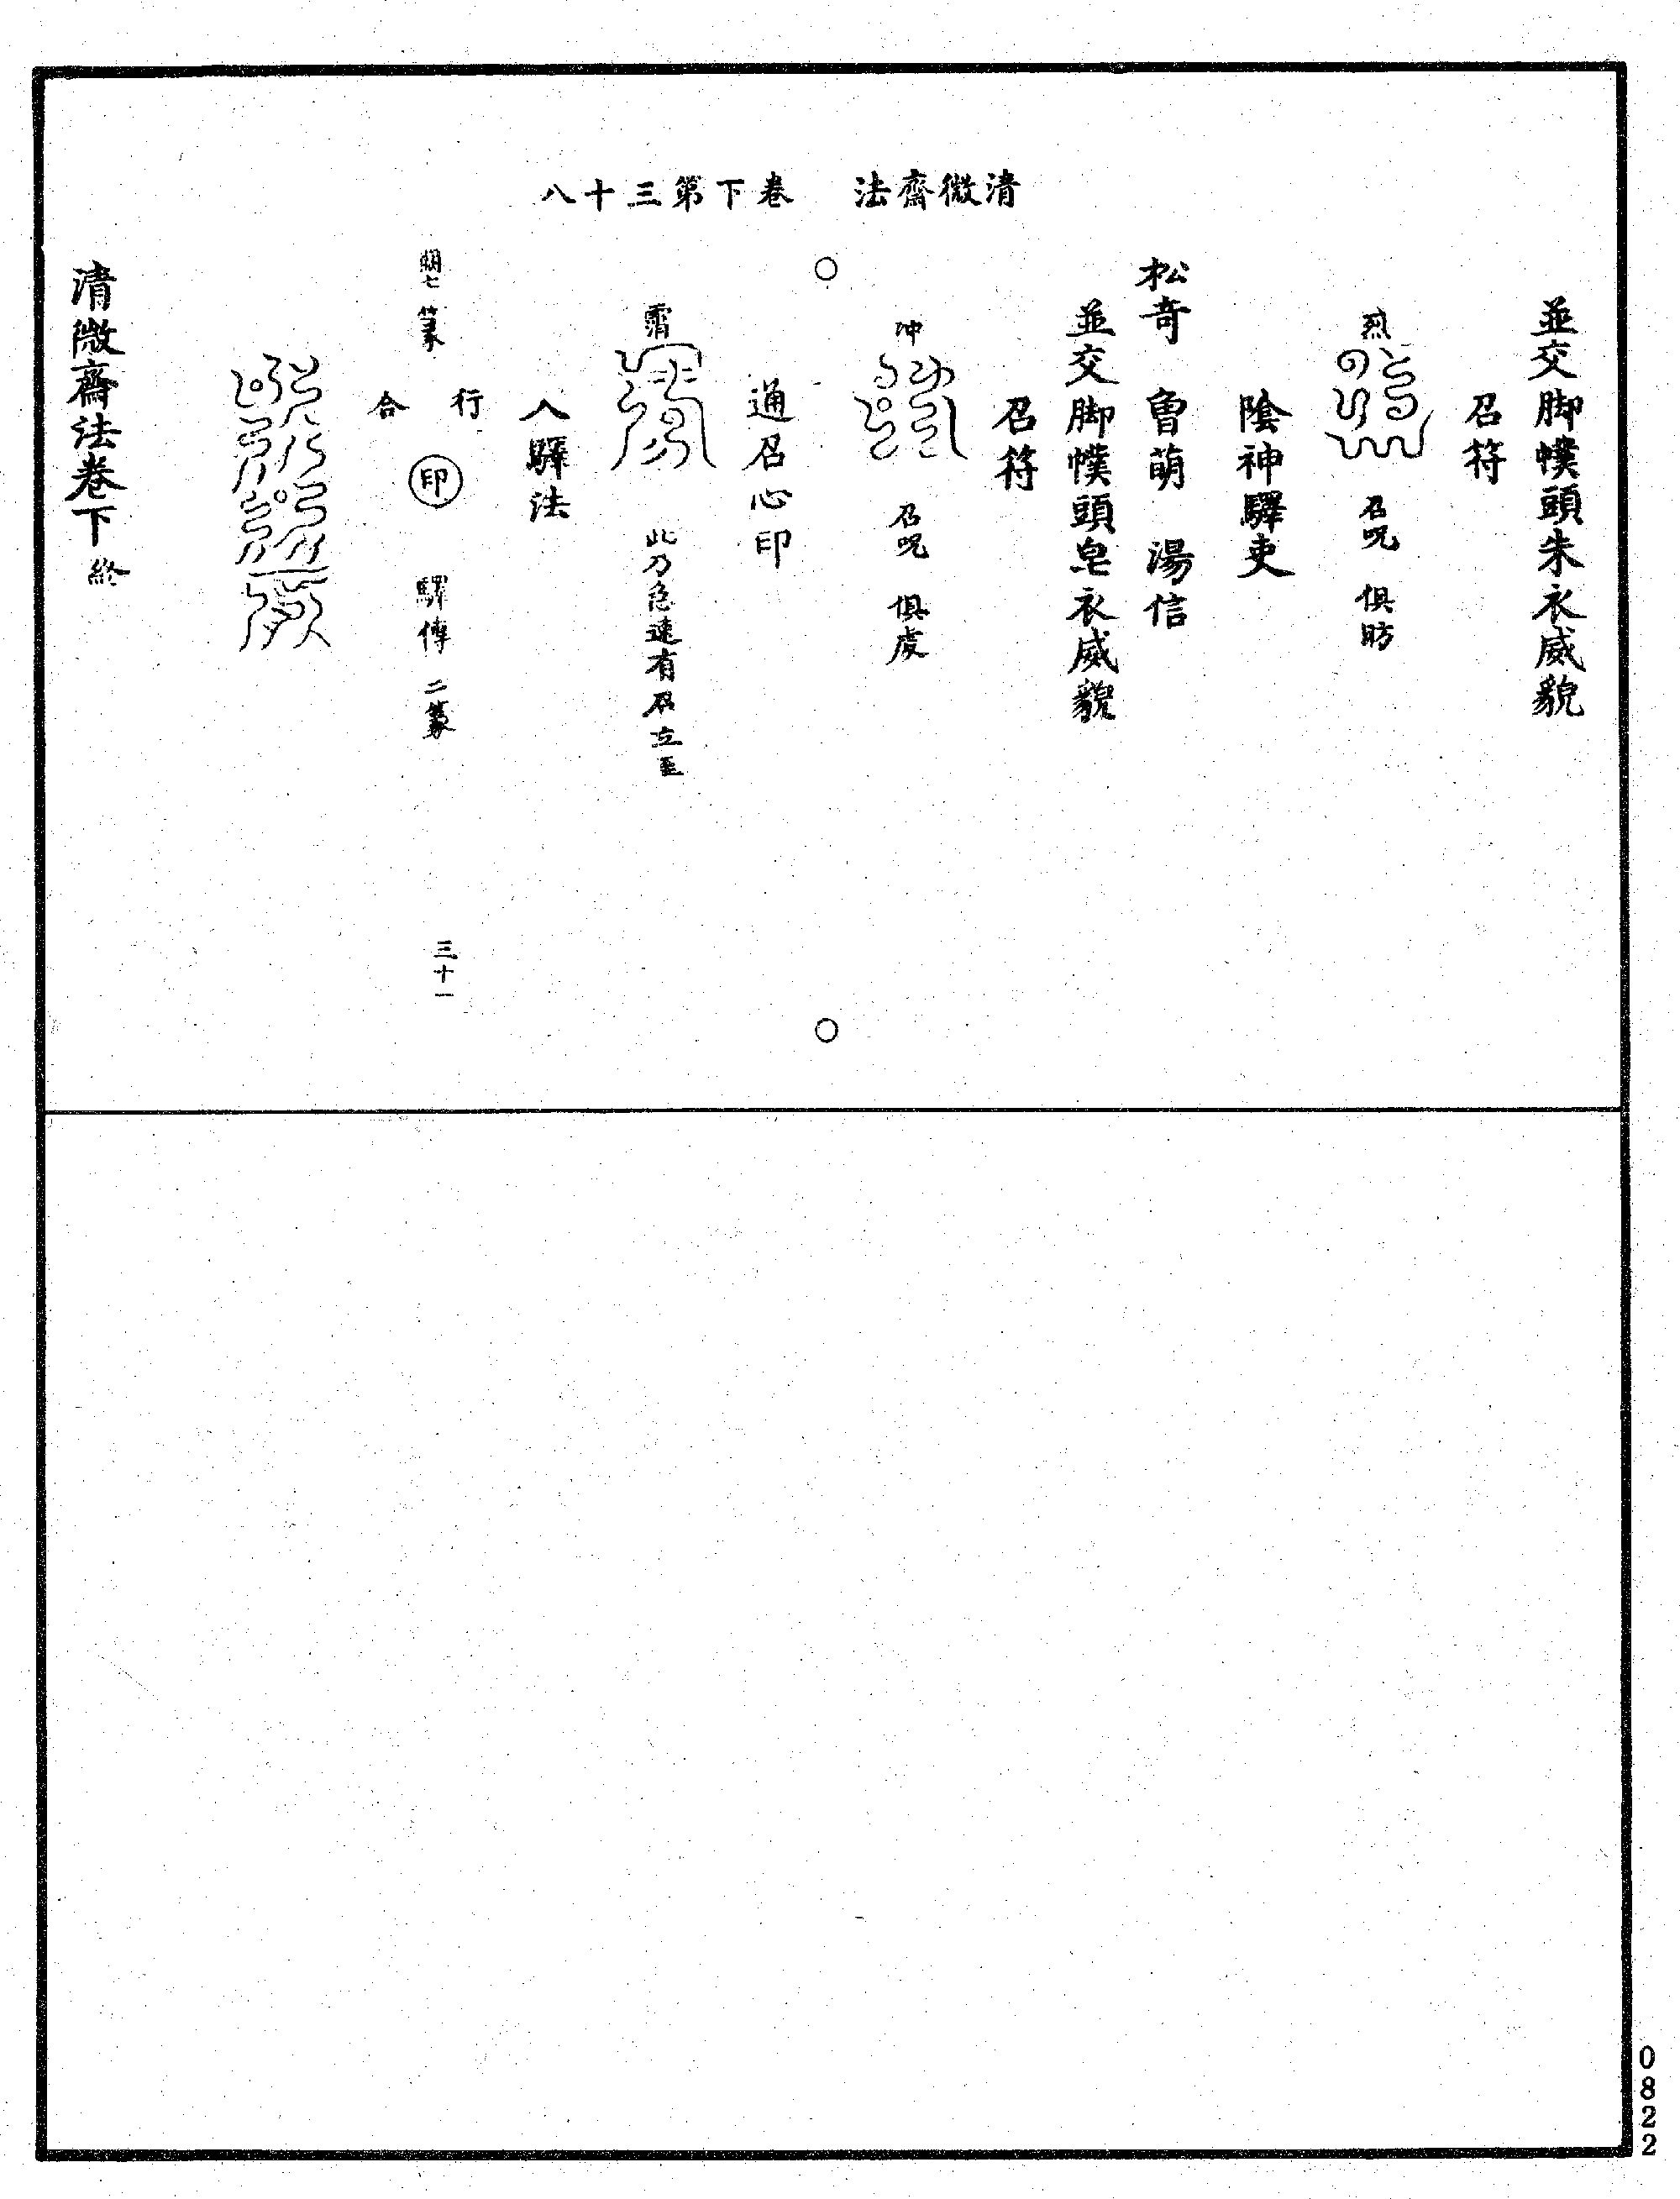 清微齋法　卷下第三十八
並交脚幞頭朱衣威貌
召符
烈
召呪　俱昉
陰神驛吏
松奇　魯萌　湯信
並交脚幞頭皂衣威貌
召符
冲
召呪　俱虔
通召心印
霤
此乃急速有召立至
入驛法
行
篆
印
驛傳　二篆
三十一
合
清微齋法卷下終
0822